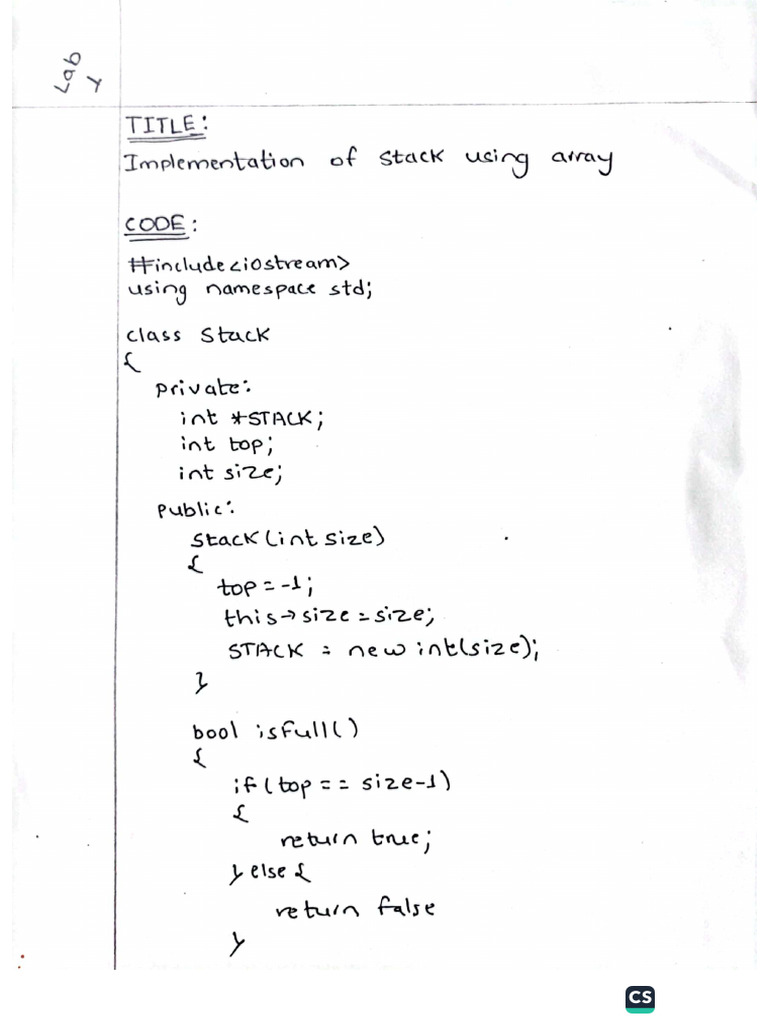 Lab
Y
TITLE:
Implementation of stack using array
CODE:
#include<iostream>
using namespace std;
class Stack
{
private:
int *STACK;
int top;
int size;
public:
Stack(int size)
{
top=-1;
this→size=size;
STACK = new int(size);
}
bool isfull()
{
if(top == size-1)
{
return true;
}else{
return false
}
CS